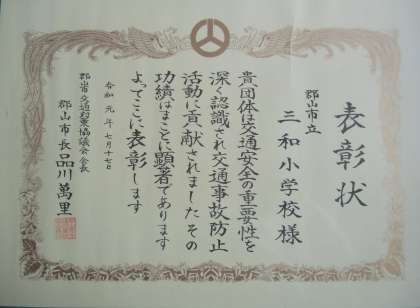 表彰状
郡山市立
三和小学校様
貴団体は交通安全の重要性を
深く認識され交通事故防止
活動に貢献されましたその
功績はまことに顕著であります
よってここに表彰します
令和元年七月十七日
郡山市交通対策協議会会長
郡山市長品川萬里